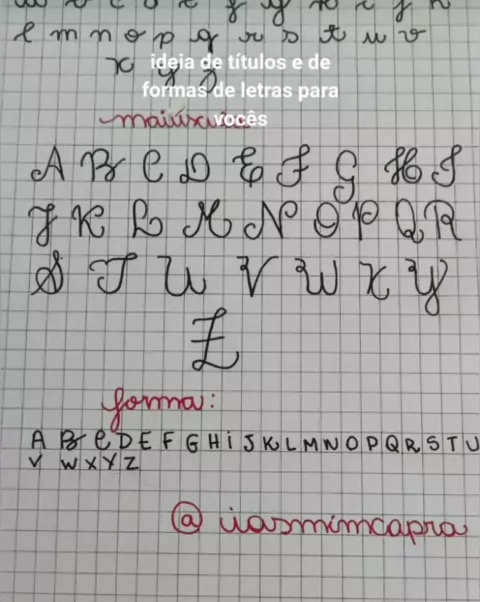 l m n o p q r s t u v
x y z
ideia de títulos e de
formas de letras para
vocês
maiúscula
A B C D E F G H I
J K L M N O P Q R
S T U V W X Y
Z
forma:
A B C D E F G H i J K L M N O P Q R S T U
V W X Y Z
@iasmimcapra